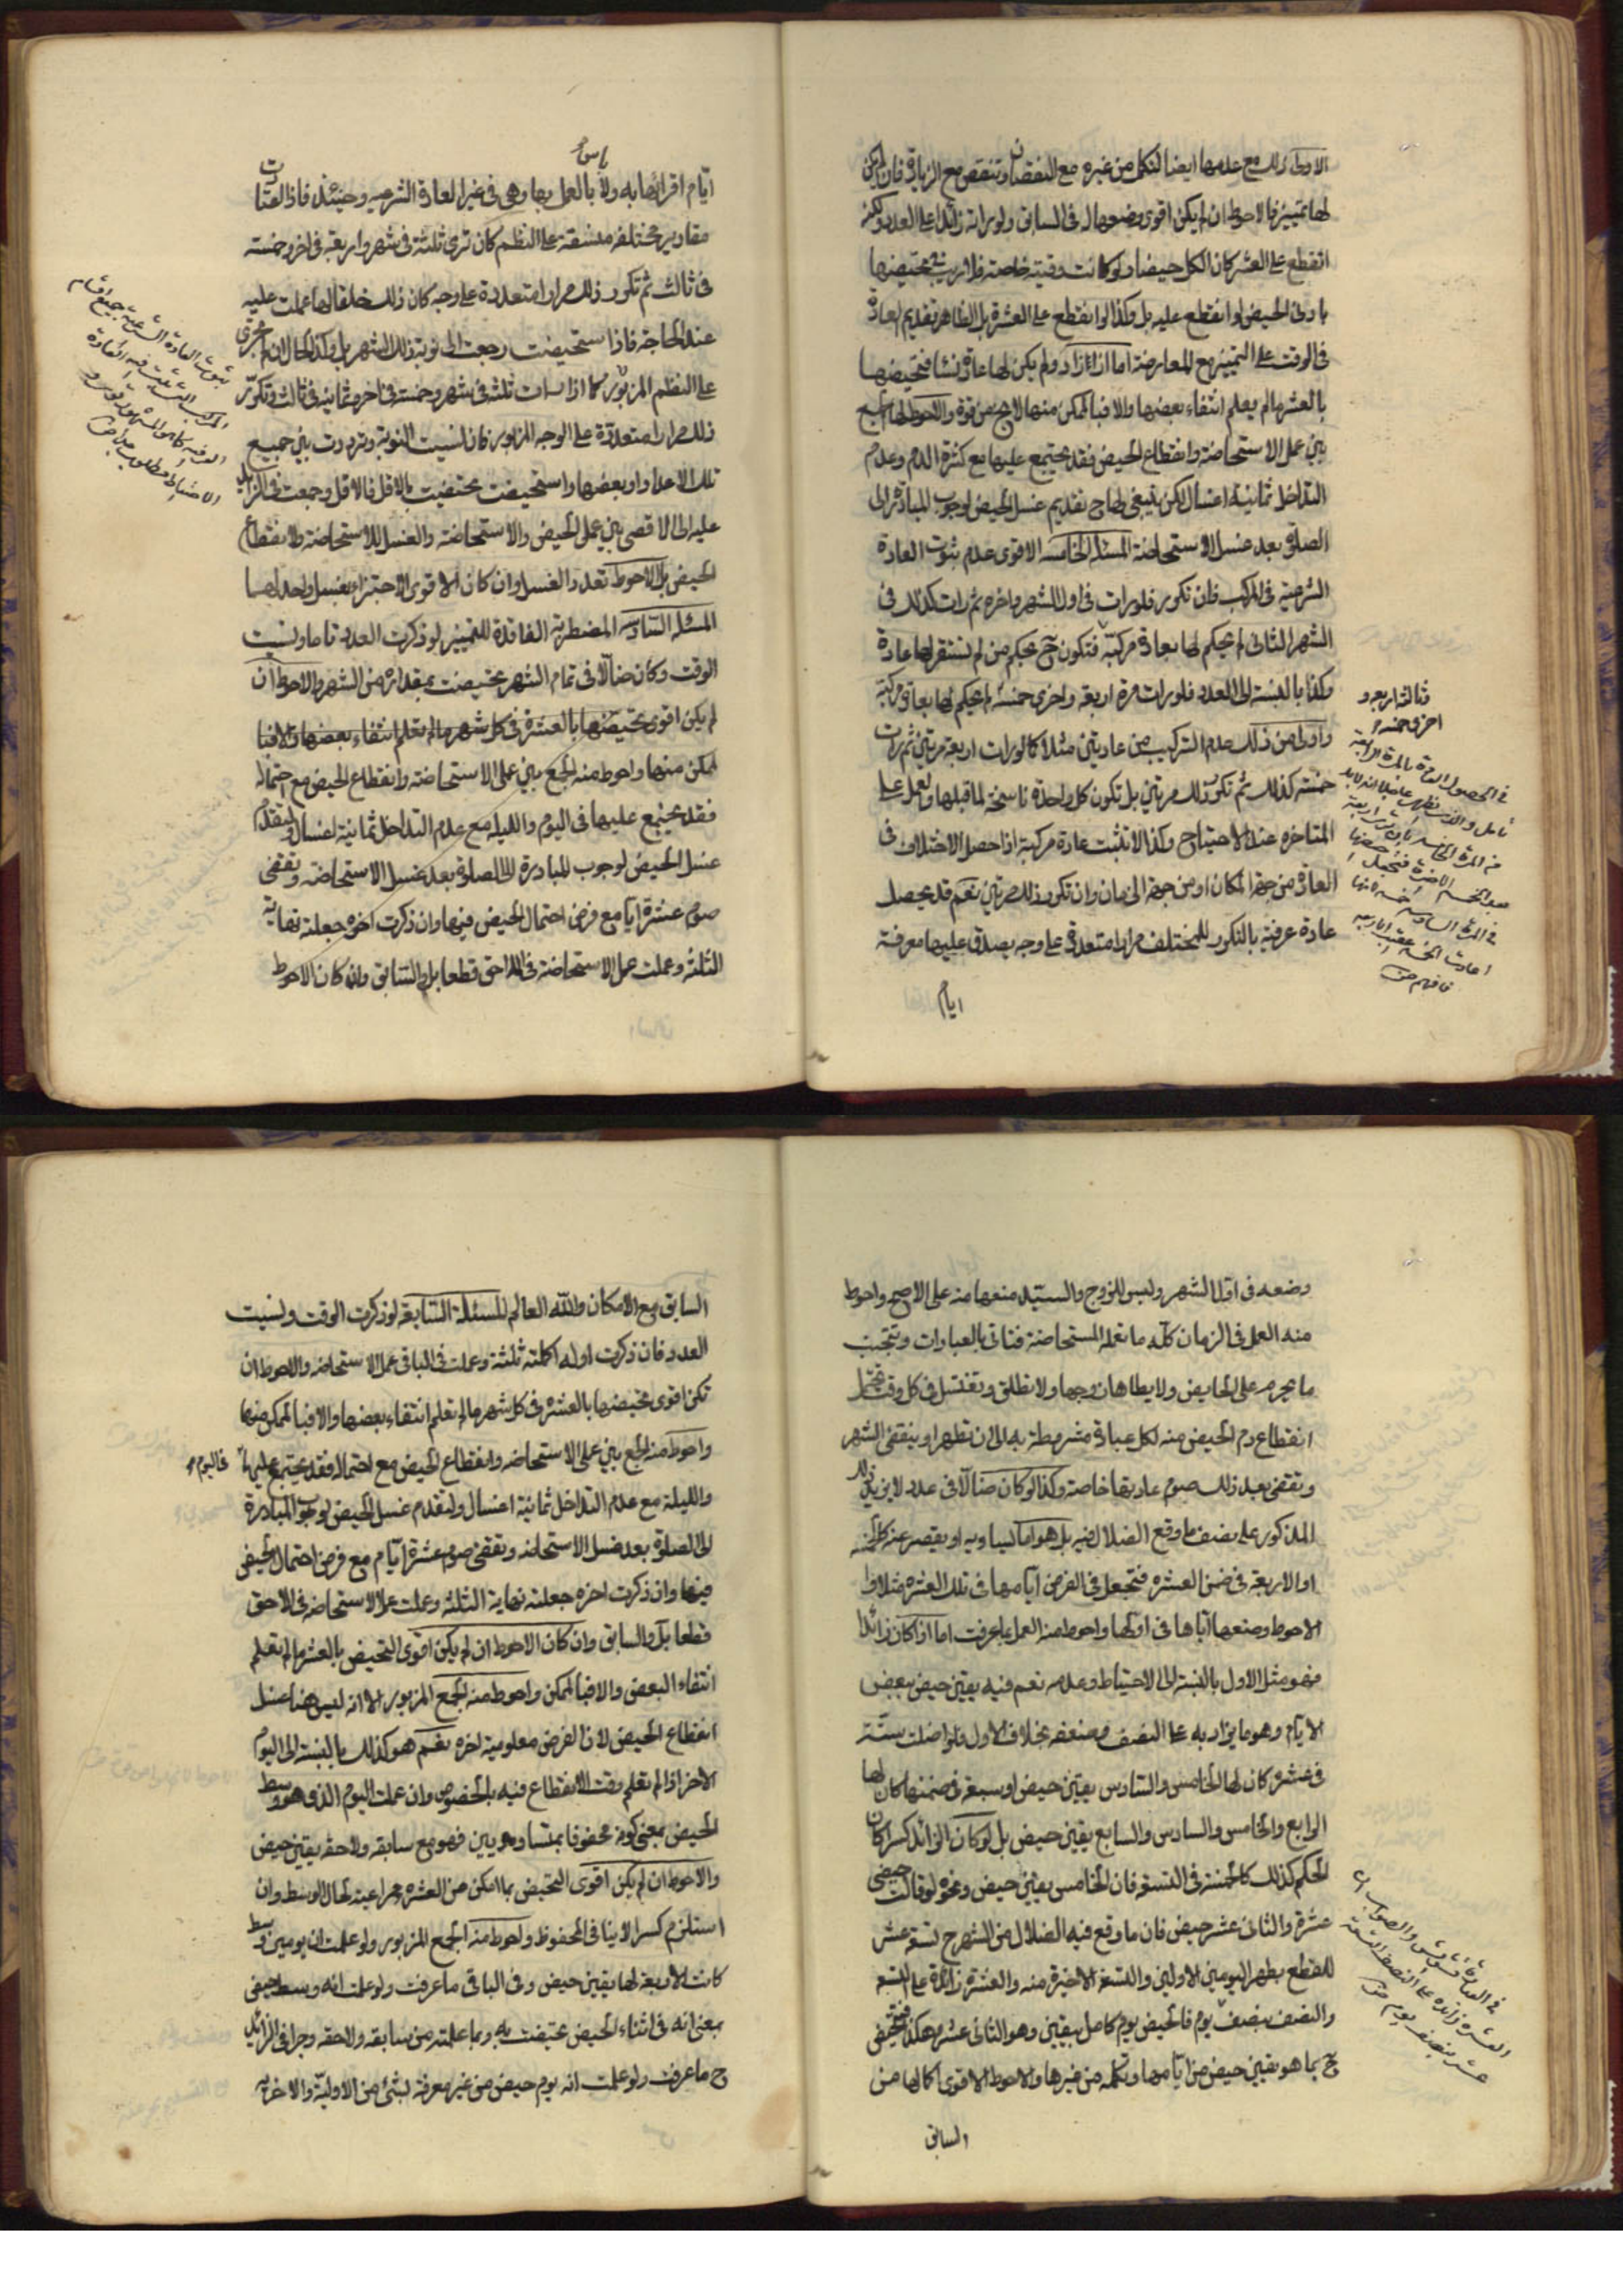 الاولى وذلك مع علمها ايضا لتكل من غيره مع النقصان وتنقص مع الزيادة فان لم يكن
لها تمييز فالاحوط ان لم يكن اقوى وضعها له فى السابق ولو رات زائدا على العدد ولكنه
انقطع على العشر كان الكل حيضا ولو كانت وقتية خاصة فلا ريب فى تحيضها
باولى الحيض لو انقطع عليه بل وكذا لو انقطع على العشرة بل الظاهر تقديم العادة
فى الوقت على التمييز مع المعارضة اما اذا زاد ولم يكن لها عادة نسا فتحيضها
بالعشر ما لم يعلم انتفاء بعضها والا فبالممكن منها لا يخ من قوة والاحوط لها الجمع
بين عمل الاستحاضة وانقطاع الحيض فقد يجتمع عليها مع كثرة الدم وعدم
التداخل ثمانية اغسال لكن ينبغى لها ح تقديم غسل الحيض لوجوب المبادرة الى
الصلوة بعد غسل الاستحاضة المسئلة الخامسه الاقوى عدم ثبوت العادة
الشرعية فى المركب فان تكرر فلو رات فى اول الشهر واخره ثم رات كذلك فى
الشهر الثانى لم يحكم لها بعادة مركبة فتكون ح بحكم من لم تستقر لها عادة
وكذا بالنسبة الى العدد فلو رات مرة اربعة واخرى خمسة لم يحكم لها بعادة مركبة
واولى من ذلك عدم التركيب من عادتين مثلا كما لو رات اربعة مرتين ثم رات
خمسة كذلك ثم تكرر ذلك مرتين بل تكون كل واحدة ناسخة لما قبلها وتعمل على
المتاخره عند الاحتياج وكذا لا تثبت عادة مركبة اذا حصل الاختلاف فى
العادة من جهة المكان او من جهة الزمان وان تكرر ذلك مرتين نعم قد يحصل
عادة عرفية بالتكرر للمختلف مرارا متعددة على وجه يصدق عليها معرفة
ايام
وثالثة اربعة و
اخرى خمسة
فافهم منه
ايام اقرائها به ولا باس بالعمل بها وهى فى غير العادة الشرعيه وحينئذ فاذا اعتادت
مقادير مختلفه متسقة على النظم كان ترى ثلثة فى شهر واربعة فى اخر وخمسة
فى ثالث ثم تكرر ذلك مرارا متعددة على وجه كان ذلك خلقا لها عملت عليه
عند الحاجة فاذا استحيضت رجعت الى نوبة ذلك الشهر بل وكذا الحال ان لم تجرى
على النظم المزبور كما اذا رات ثلثة فى شهر وخمسة فى اخر وثمانية فى ثالث وتكرر
ذلك مرارا متعددة على الوجه المزبور فان نسيت النوبة وترددت بين جميع
تلك الاعداد او بعضها واستحيضت تحيضت بالاقل فالاقل وجمعت فى الزايد
عليه الى الاقصى بين عمل الحيض والاستحاضة والغسل للاستحاضة ولانقطاع
الحيض بل الاحوط تعدد الغسل وان كان الاقوى الاجتزاء بغسل واحد لهما
المسئلة السادسه المضطربة الفاقدة للتمييز لو ذكرت العدد تاما ونسيت
الوقت وكان ضالا فى تمام الشهر تحيضت بمقداره من الشهر والاحوط ان
لم يكن اقوى تحيضها بالعشرة فى كل شهر ما لم تعلم انتفاء بعضها والا فبا
لممكن منها واحوط منه الجمع بين على الاستحاضة وانقطاع الحيض مع احتماله
فقد يجتمع عليها فى اليوم والليله مع عدم التداخل ثمانية اغسال ولتقدم
غسل الحيض لوجوب المبادرة الى الصلوة بعد غسل الاستحاضه وتقضى
صوم عشرة ايام مع فرض احتمال الحيض فيها وان ذكرت اخره جعلته نهاية
الثلثة وعملت عمل الاستحاضة فى اللاحق قطعا بل والسابق وان كان الاحوط
ثبوت العادة الشرعية جميع اقسام
وضعه فى اول الشهر وليس للزوج والسيد منعها منه على الاصح واحوط
منه العمل فى الزمان كله ما تعمله المستحاضة فتاتى بالعبادات وتجتنب
ما يحرم على الحايض ولا يطاها زوجها ولا تطلق وتغتسل فى كل وقت تحتمل
انقطاع دم الحيض منه لكل عبادة مشروطة به الى ان تطهر او ينقضى الشهر
وتقضى بعد ذلك صوم عادتها خاصة وكذا لو كان ضالا فى عدد لا يزيد ذلك
المذكور على نصف ما وقع الضلال فيه بل هو اما يساويه او يقصر عنه كالخمسة
او الاربعة فى ضمن العشره فتجعل فى الفرض ايامها فى تلك العشره مثلا وا
لاحوط وضعها اياها فى اولها واحوط منه العمل بما عرفت اما اذا كان زائدا
فهو مثل الاول بالنسبة الى الاحتياط وعدمه نعم فيه يقين حيض ببعض
الايام وهو ما يزاد به على النصف وضعفه بخلاف الاول فلو اضلت ستة
فى عشره كان لها الخامس والسادس بيقين حيض او سبعة فى ضمنها كان لها
الرابع والخامس والسادس والسابع بيقين حيض بل لو كان الزائد كسرا كان
الحكم كذلك كالخمسة فى التسعة فان الخامس بيقين حيض ونحوه لو قالت حيضى
عشرة والثانى عشر حيض فان ما وقع فيه الضلال من الشهر ح تسعة عشر
للقطع بطهر اليومين الاولين والتسعة الاخيرة منه والعشرة زائدة على التسعة
والنصف بنصف يوم فالحيض يوم كامل بيقين وهو الثانى عشر وهكذا فتحيض
ح بما هو يقين حيض من ايامها وتكمله من غيرها والاحوط الاقوى اكمالها من
السابق
السابق مع الامكان والله العالم المسئلة السابعة لو ذكرت الوقت ونسيت
العدد فان ذكرت اوله اكملته ثلثة وعملت فى الباقى عمل الاستحاضه والاحوط ان
تكن اقوى تحيضها بالعشره فى كل شهر ما لم تعلم انتفاء بعضها والا فبالممكن منها
واحوط منه الجمع بين على الاستحاضه وانقطاع الحيض مع احتماله فقد يجتمع عليها فى اليوم
والليلة مع عدم التداخل ثمانية اغسال ولتقدم غسل الحيض لوجوب المبادرة
الى الصلوة بعد غسل الاستحاضه وتقضى صوم عشرة ايام مع فرض احتمال الحيض
فيها وان ذكرت اخره جعلته نهاية الثلثة وعملت عمل الاستحاضه فى اللاحق
قطعا بل والسابق وان كان الاحوط ان لم يكن اقوى التحيض بالعشر ما لم تعلم
انتفاء البعض والا فبالممكن واحوط منه الجمع المزبور الا انه ليس هنا غسل
انقطاع الحيض لان الفرض معلومية اخره نعم هو كذلك بالنسبة الى اليوم
الاخر اذا لم تعلم وقت الانقطاع فيه بالخصوص وان علمت اليوم الذى هو وسط
الحيض بمعنى كونه محفوفا بمتساويين فهو مع سابقه ولاحقه يقين حيض
والاحوط ان لم يكن اقوى التحيض بما امكن من العشره مراعية لحال الوسط وان
استلزم كسرا لاينافى المحفوظ واحوط منه الجمع المزبور ولو علمت ان يومين وسط
كانت الاربعة لها يقين حيض وفى الباقى ما عرفت ولو علمت انه وسط حيض
بمعنى انه فى اثناء الحيض تحيضت به وبما علمته من سابقه ولاحقه وجرا فى الزائد
ح ما عرفت ولو علمت انه يوم حيض من غير معرفة لشئ من الاولية والاخرية